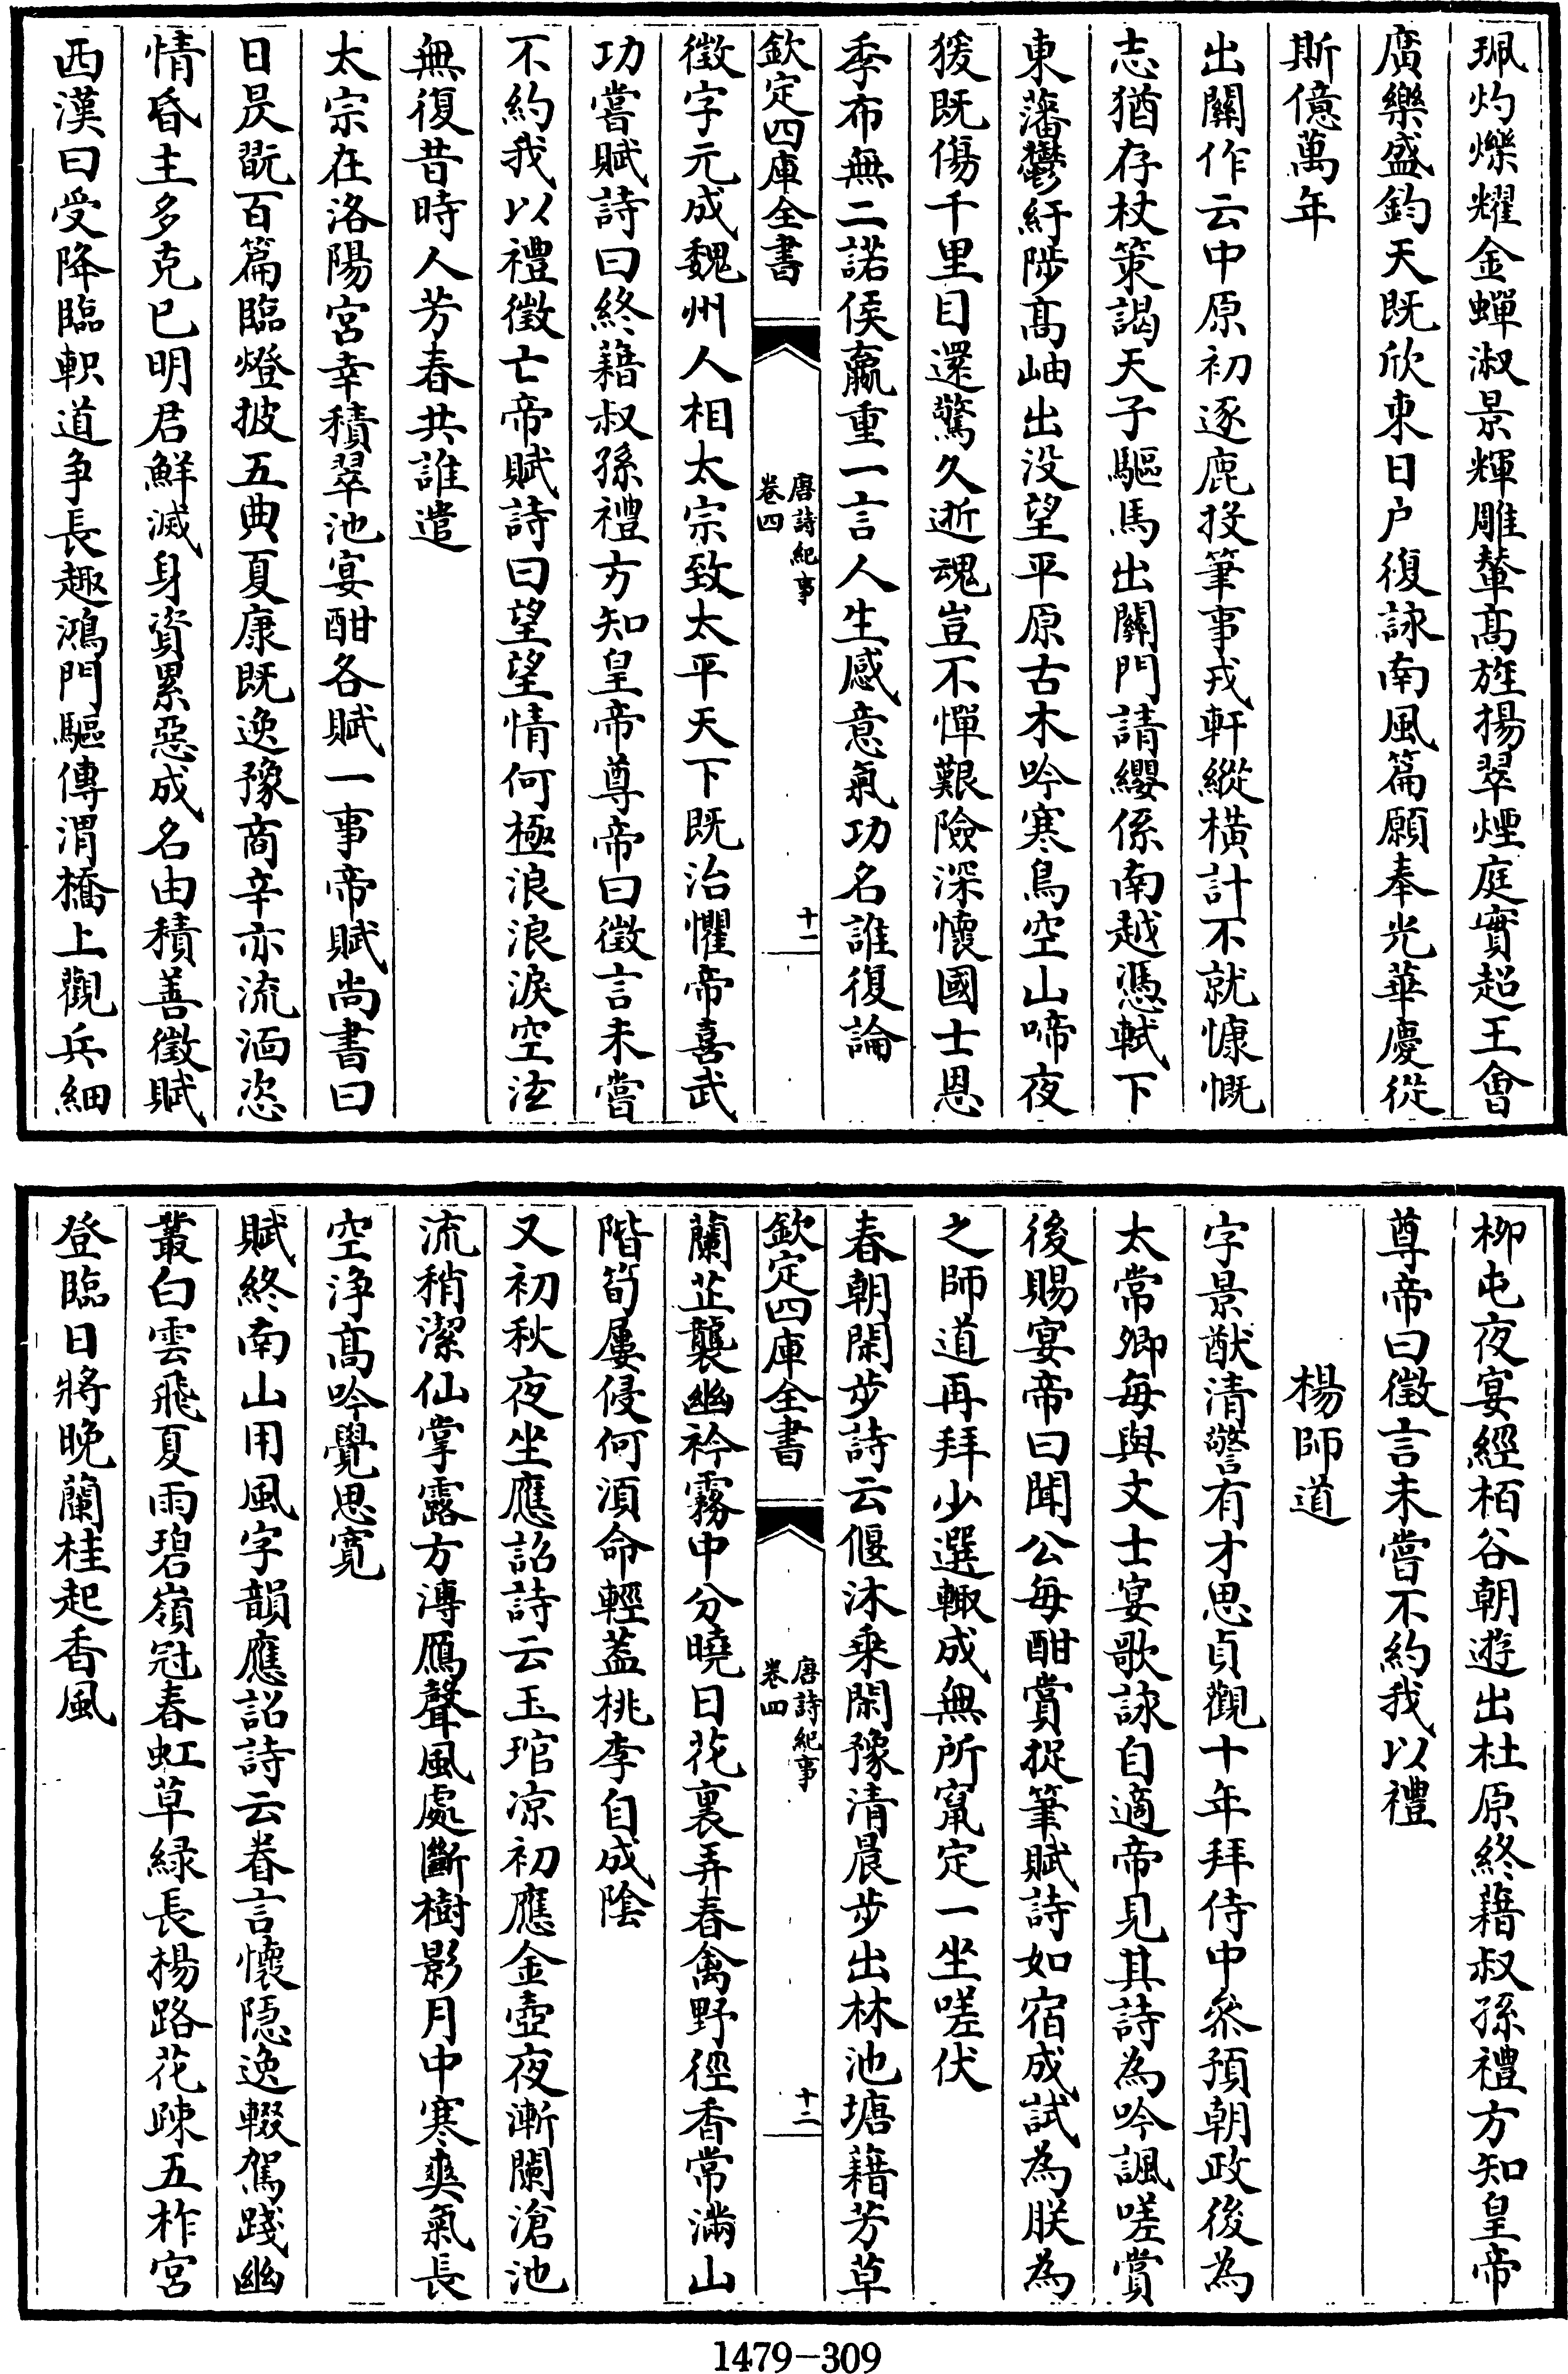 珮灼爍耀金蟬淑景輝雕輦髙旌揚翠煙庭實超王會
廣樂盛鈞天既欣東日户復詠南風篇願奉光華慶從
斯億萬年
出關作云中原初逐鹿投筆事戎軒縱横計不就慷慨
志猶存杖策謁天子驅馬出關門請纓係南越憑軾下
東藩鬱紆陟髙岫出没望平原古木吟寒鳥空山啼夜
猨既傷千里目還驚久逝魂豈不憚艱險深懷國士恩
季布無二諾侯嬴重一言人生感意氣功名誰復論
欽定四庫全書
唐詩紀事
卷四
十一
徵字元成魏州人相太宗致太平天下既治懼帝喜武
功嘗賦詩曰終藉叔孫禮方知皇帝尊帝曰徵言未嘗
不約我以禮徵亡帝賦詩曰望望情何極浪浪淚空泫
無復昔時人芳春共誰遣
太宗在洛陽宫幸積翠池宴酣各賦一事帝賦尚書曰
日昃翫百篇臨燈披五典夏康既逸豫商辛亦流湎恣
情昏主多克已明君鮮滅身資累惡成名由積善徵賦
西漢曰受降臨軹道争長趣鴻門驅傳渭橋上觀兵細
柳屯夜宴經栢谷朝遊出杜原終藉叔孫禮方知皇帝
尊帝曰徵言未嘗不約我以禮
楊師道
字景猷清警有才思貞觀十年拜侍中叅預朝政後為
太常卿每與文士宴歌詠自適帝見其詩為吟諷嗟賞
後賜宴帝曰聞公每酣賞捉筆賦詩如宿成試為朕為
之師道再拜少選輙成無所竄定一坐嗟伏
春朝閑步詩云偃沐乗閑豫清晨步出林池塘藉芳草
欽定四庫全書
唐詩紀事
卷四
十二
蘭芷襲幽衿霧中分曉日花裏弄春禽野徑香常滿山
階筍屢侵何湏命輕蓋桃李自成陰
又初秋夜坐應詔詩云玉琯凉初應金壺夜漸闌滄池
流稍潔仙掌露方漙鴈聲風處斷樹影月中寒爽氣長
空浄髙吟覺思寛
賦終南山用風字韻應詔詩云眷言懷隠逸輟駕踐幽
叢白雲飛夏雨碧嶺冠春虹草緑長楊路花疎五柞宫
登臨日將晚蘭桂起香風
1479-309